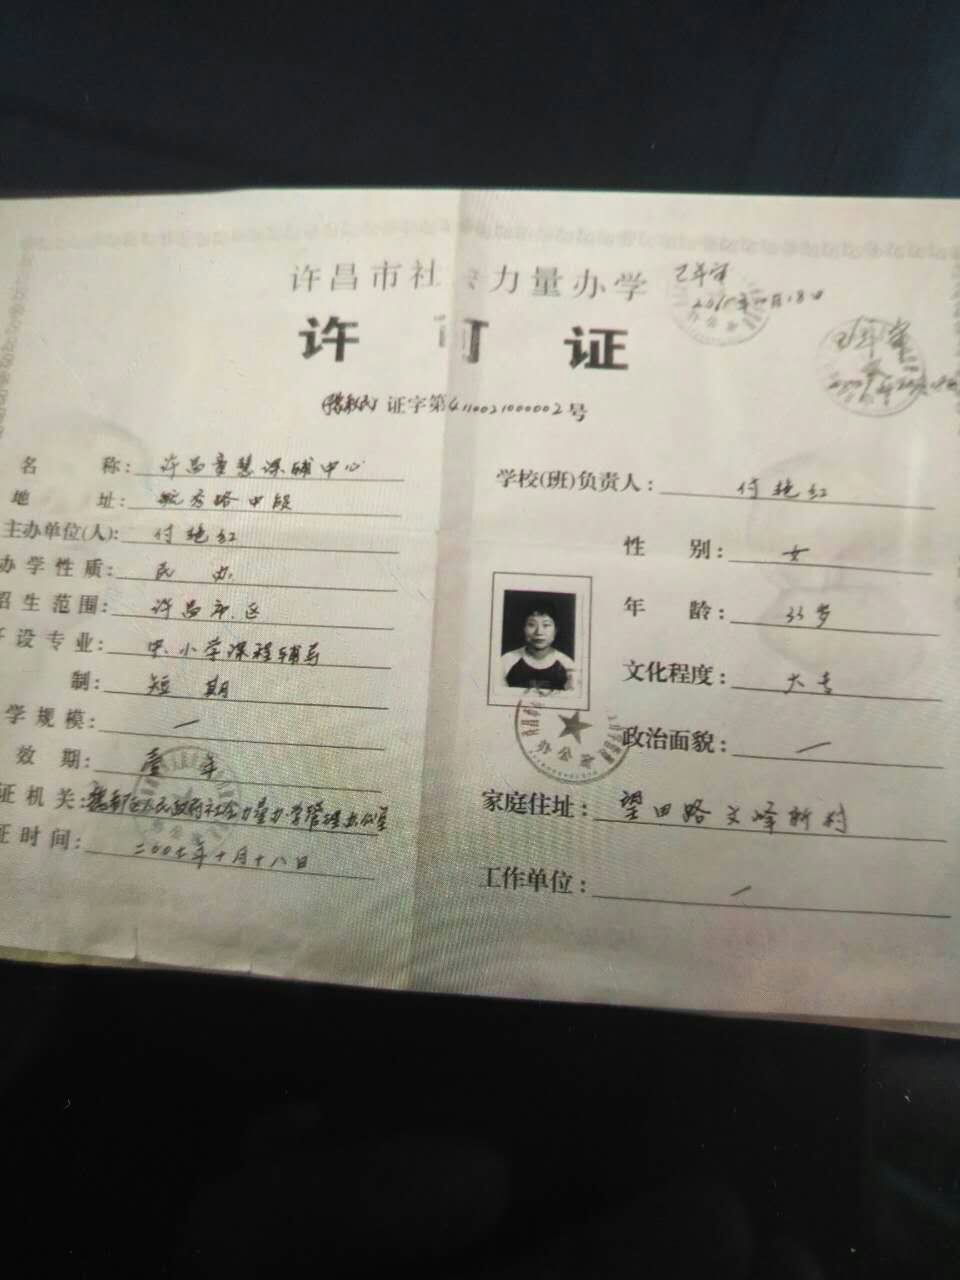 许昌市社 力量办学
许可证
证字第4110021000002号
已年审
2015年 月18日
已年审
名 称: 许昌童慧课辅中心
地 址: 毓秀路中段
主办单位(人): 付艳红
办学性质: 民 办
招生范围: 许昌市区
开设专业: 中小学课程辅导
制: 短 期
学规模: 一
效期: 壹 年
证机关: 魏都区人民政府社会力量办学管理办公室
证时间: 二00七年十月十八日
学校(班)负责人: 付艳红
性 别: 女
年 龄: 33岁
文化程度: 大专
政治面貌: 一
家庭住址: 望田路文峰新村
工作单位: 一
办公室